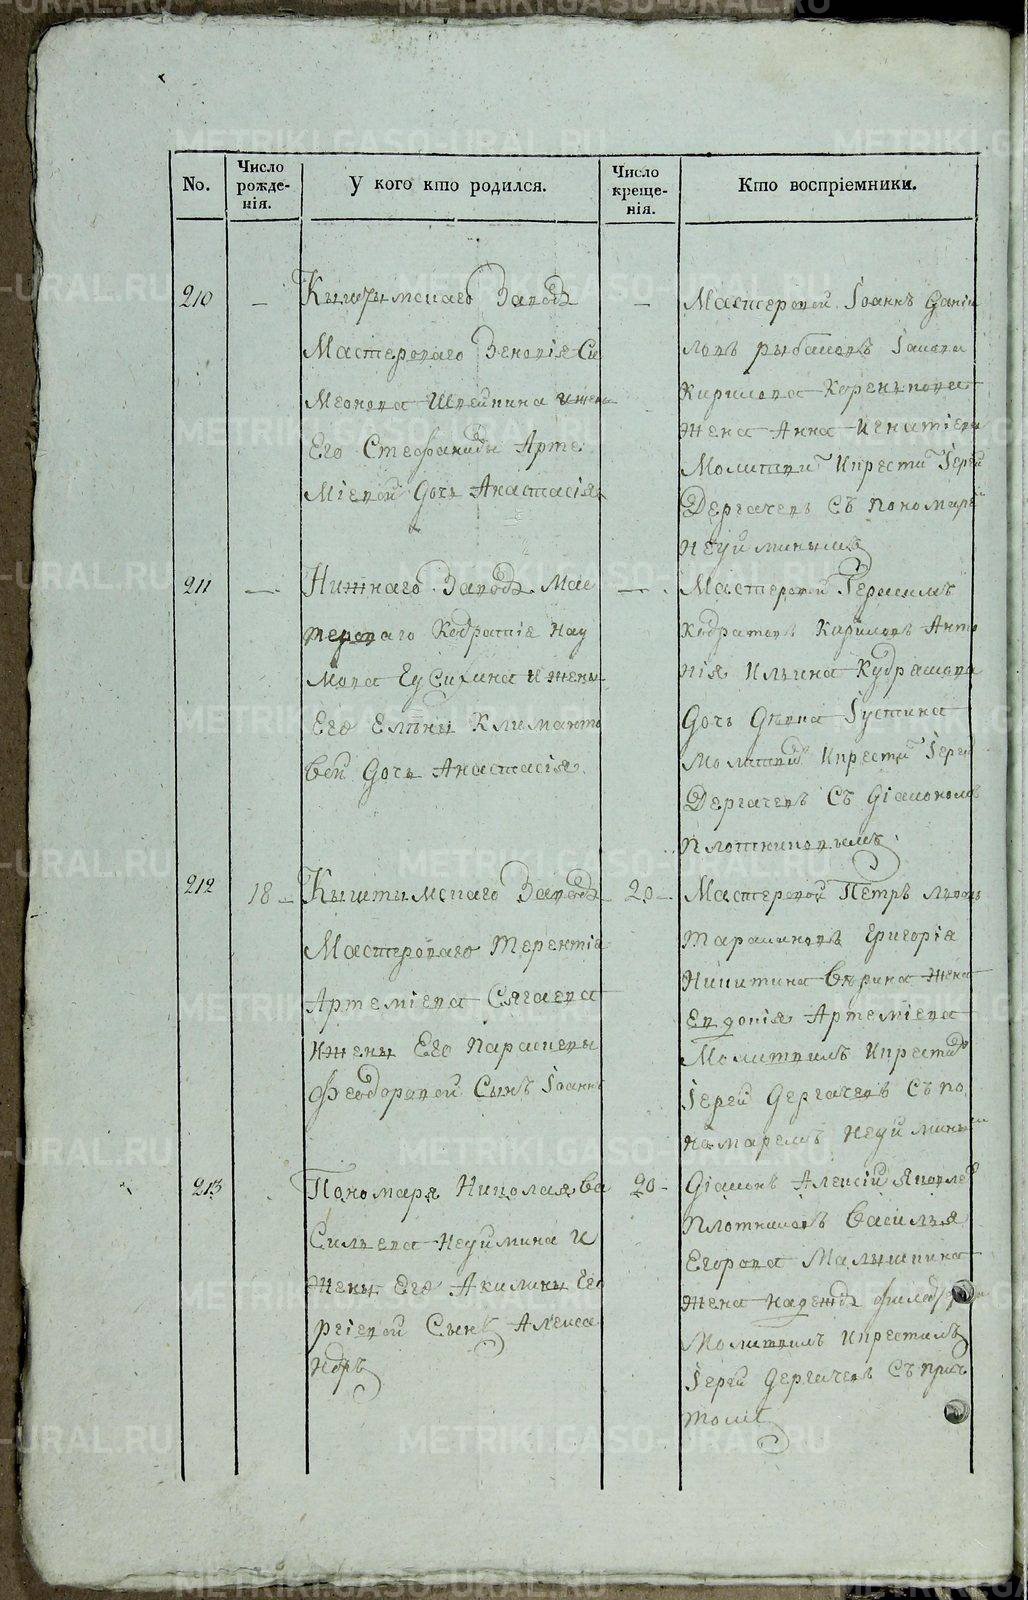 No.
Число рожде-нія.
У кого кто родился.
Число креще-нія.
Кто воспріемники.
210
—
Кыштымскаго Завода
Мастероваго Зеновія Си
Меонова Швейкина и жены
Его Стефаниды Арте
Міевой Дочь Анастасія
—
Мастеровой Іоаннъ Даніи
ловъ рыбаковъ Іакова
Кирилова Кореньпова
Жена Анна Игнатіева
Молитви и крести Іерей
Дергачевъ Съ пономаре
Неуйминымъ
211
—
Нижнаго Завода Мас
тероваго Кодратія Нау
Мова Еусихина и жены
Его Елены Климанто
вой Дочь Анастасія
—
Мастеровой Герасимъ
Кодратовъ Кириловъ Анто
нія Ильина Кудрашова
Дочь Девка Іустина
Молитви и крести Іерей
Дергачевъ Съ Діакономъ
Плотниковымъ
212
18 —
Кыштымскаго Завода
Мастероваго Терентія
Артеміева Сягаева
И жены Его Параскевы
Феодоровой Сынъ Іоаннъ
20 —
Мастеровой Петръ
Таракановъ Григорія
Никитина жена
Евдокія Артеміева
Молитвилъ и крести
Іерей Дергачевъ Съ по
Номаремъ Неуйминым
213
Пономаря Николая Ва
Сильева Неуймина И
Жены Его Акилины Его
ргіевой Сынъ Алекса
ндръ
20 —
Діаконъ Алексій Яковле
Плотниковъ Василья
Егорова Малышкина
Жена Надежда
Молитвилъ и крестилъ
Іерей Дергачевъ Съ прич
томъ
METRIKI.GASO-URAL.RU